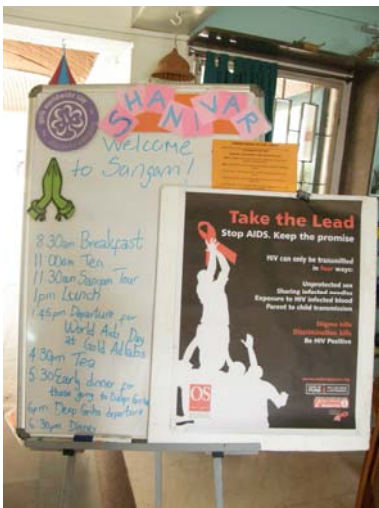 SHANIVAR
Welcome
to Sangam!
8.30am Breakfast
11.00am Tea
11.30am Sangam Tour
1pm Lunch
1.45pm Departure for
World Aids Day
at Gold Adlabs
4.30pm Tea
5.30 Early dinner for
those going to
6pm departure
6.30pm Dinner
Take the Lead
Stop AIDS. Keep the promise
HIV can only be transmitted
in four ways:
Unprotected sex
Sharing infected needles
Exposure to HIV infected blood
Parent to child transmission
Stigma kills
Discrimination kills
Be HIV Positive
OS